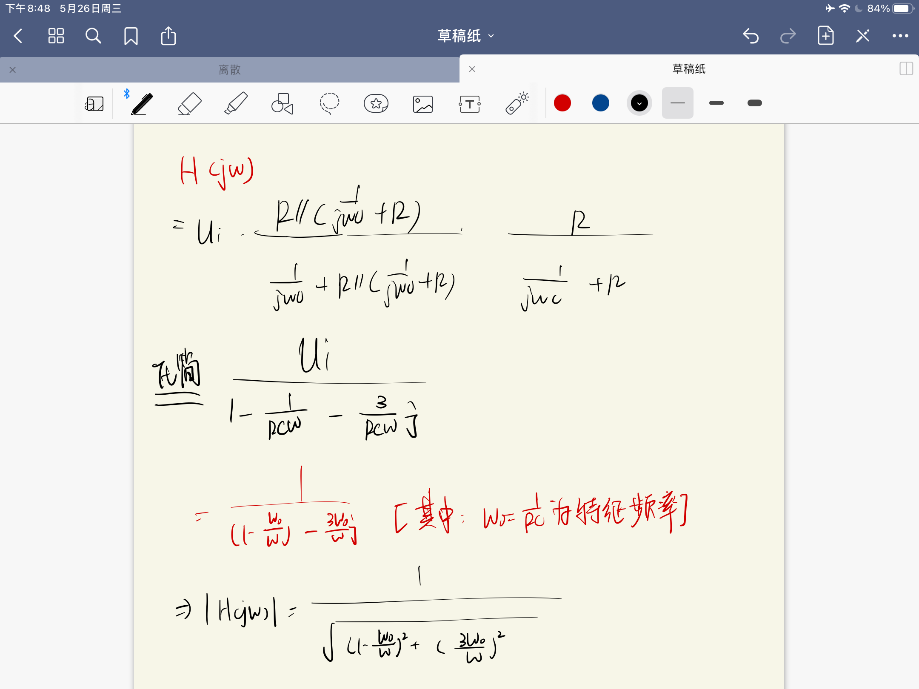 下午8:48 5月26日周三 84%
草稿纸
离散 草稿纸
H(jw)
= Ui · R//(1/jwc + R) / (1/jwc + R//(1/jwc + R)) · R / (1/jwc + R)
化简 Ui / (1 - 1/RCW - 3/RCW j)
= 1 / ((1 - W0/W) - 3W0/W j) [其中: W0 = 1/RC 为特征频率]
⇒ |H(jw)| = 1 / √((1 - W0/W)² + (3W0/W)²)